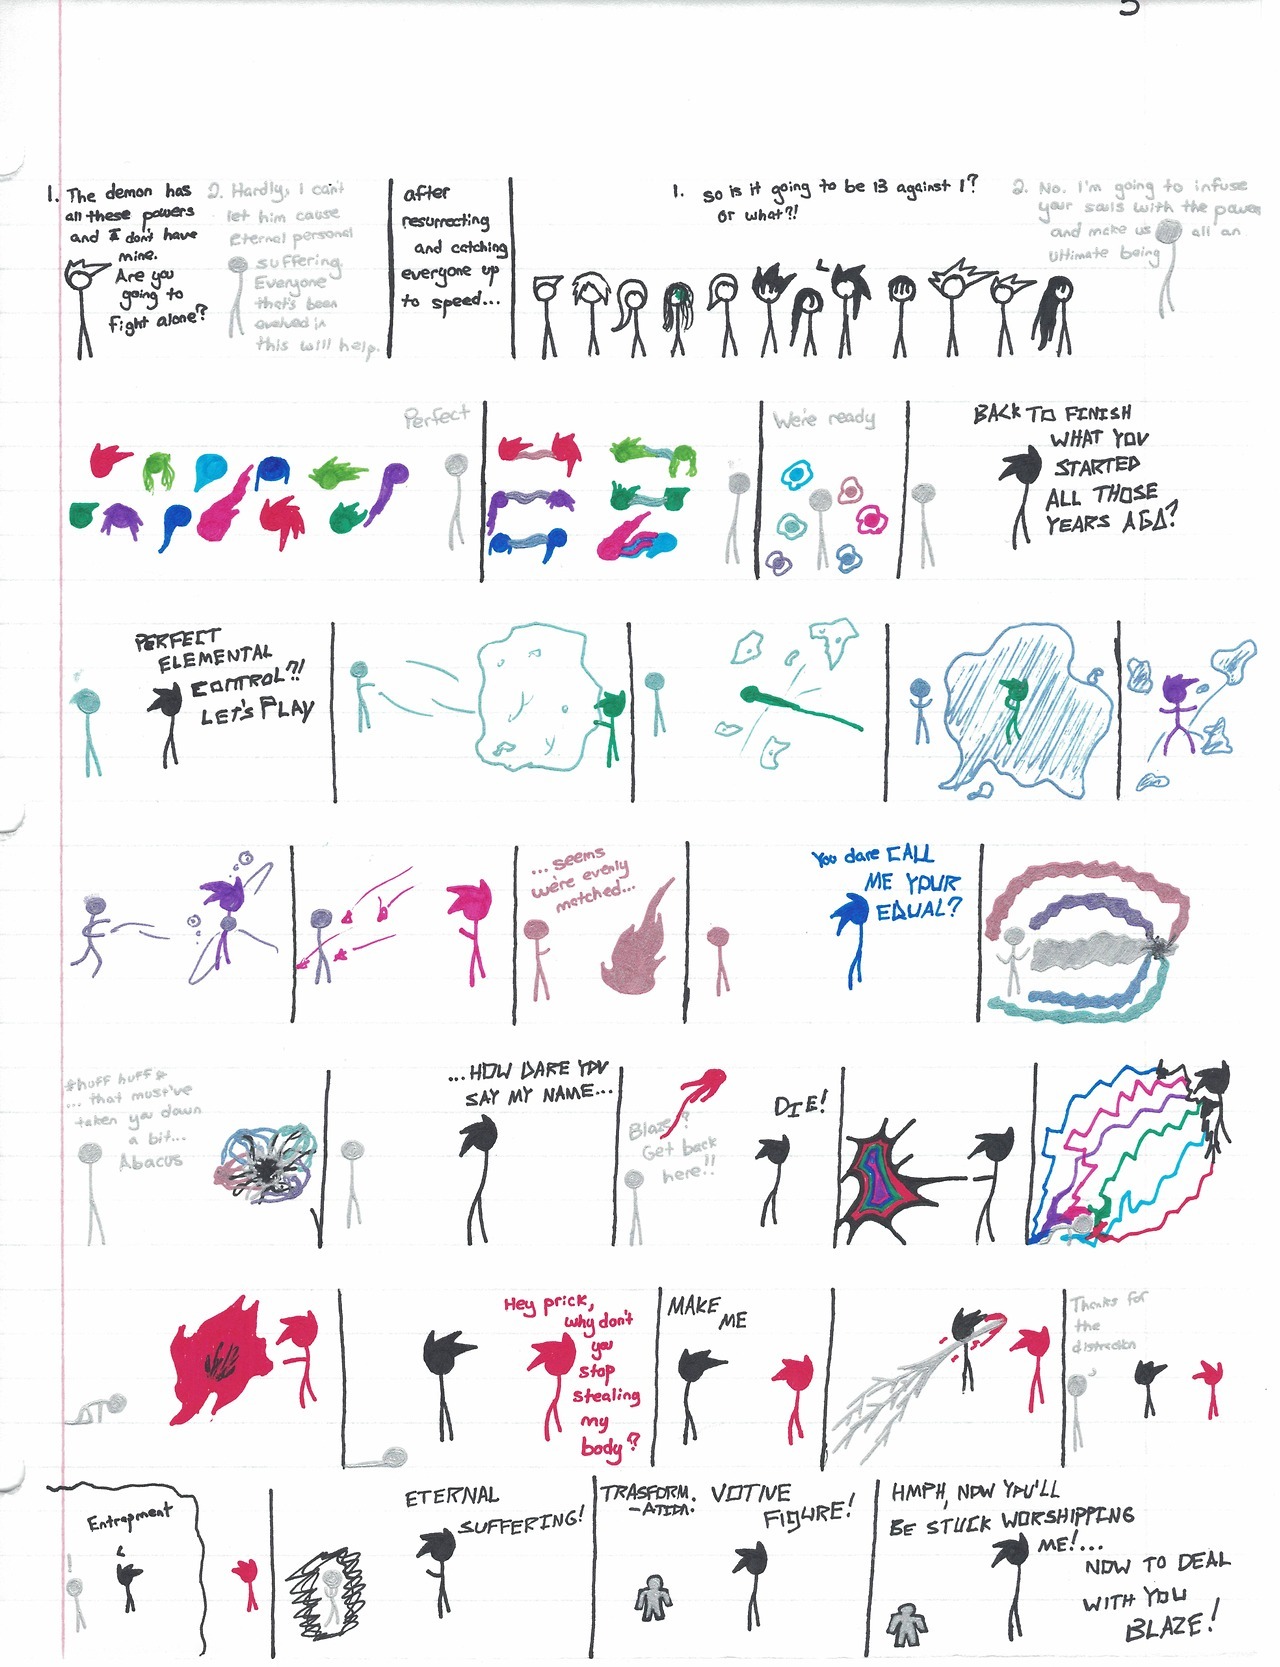 5
1. The demon has
all these powers
and I don't have
mine.
Are you
going to
fight alone?
2. Hardly, I can't
let him cause
eternal personal
suffering.
Everyone
that's been
evolved in
this will help.
after
resurrecting
and catching
everyone up
to speed...
1. so is it going to be 13 against 1?
or what?!
2. No. I'm going to infuse
your souls with the power
and make us all an
ultimate being
Perfect
We're ready
BACK TO FINISH
WHAT YOU
STARTED
ALL THOSE
YEARS AGO?
PERFECT
ELEMENTAL
CONTROL?!
LET'S PLAY
...seems
we're evenly
matched...
You dare CALL
ME YOUR
EQUAL?
*huff huff*
... that must've
taken you down
a bit...
Abacus
...HOW DARE YOU
SAY MY NAME...
Blaze?
Get back
here!!
DIE!
Hey prick,
why don't
you
stop
stealing
my
body?
MAKE
ME
Thanks for
the
distraction
Entrapment
!
ETERNAL
SUFFERING!
TRASFORM.
-ATION.
VOTIVE
FIGURE!
HMPH, NOW YOU'LL
BE STUCK WORSHIPPING
ME!...
NOW TO DEAL
WITH YOU
BLAZE!